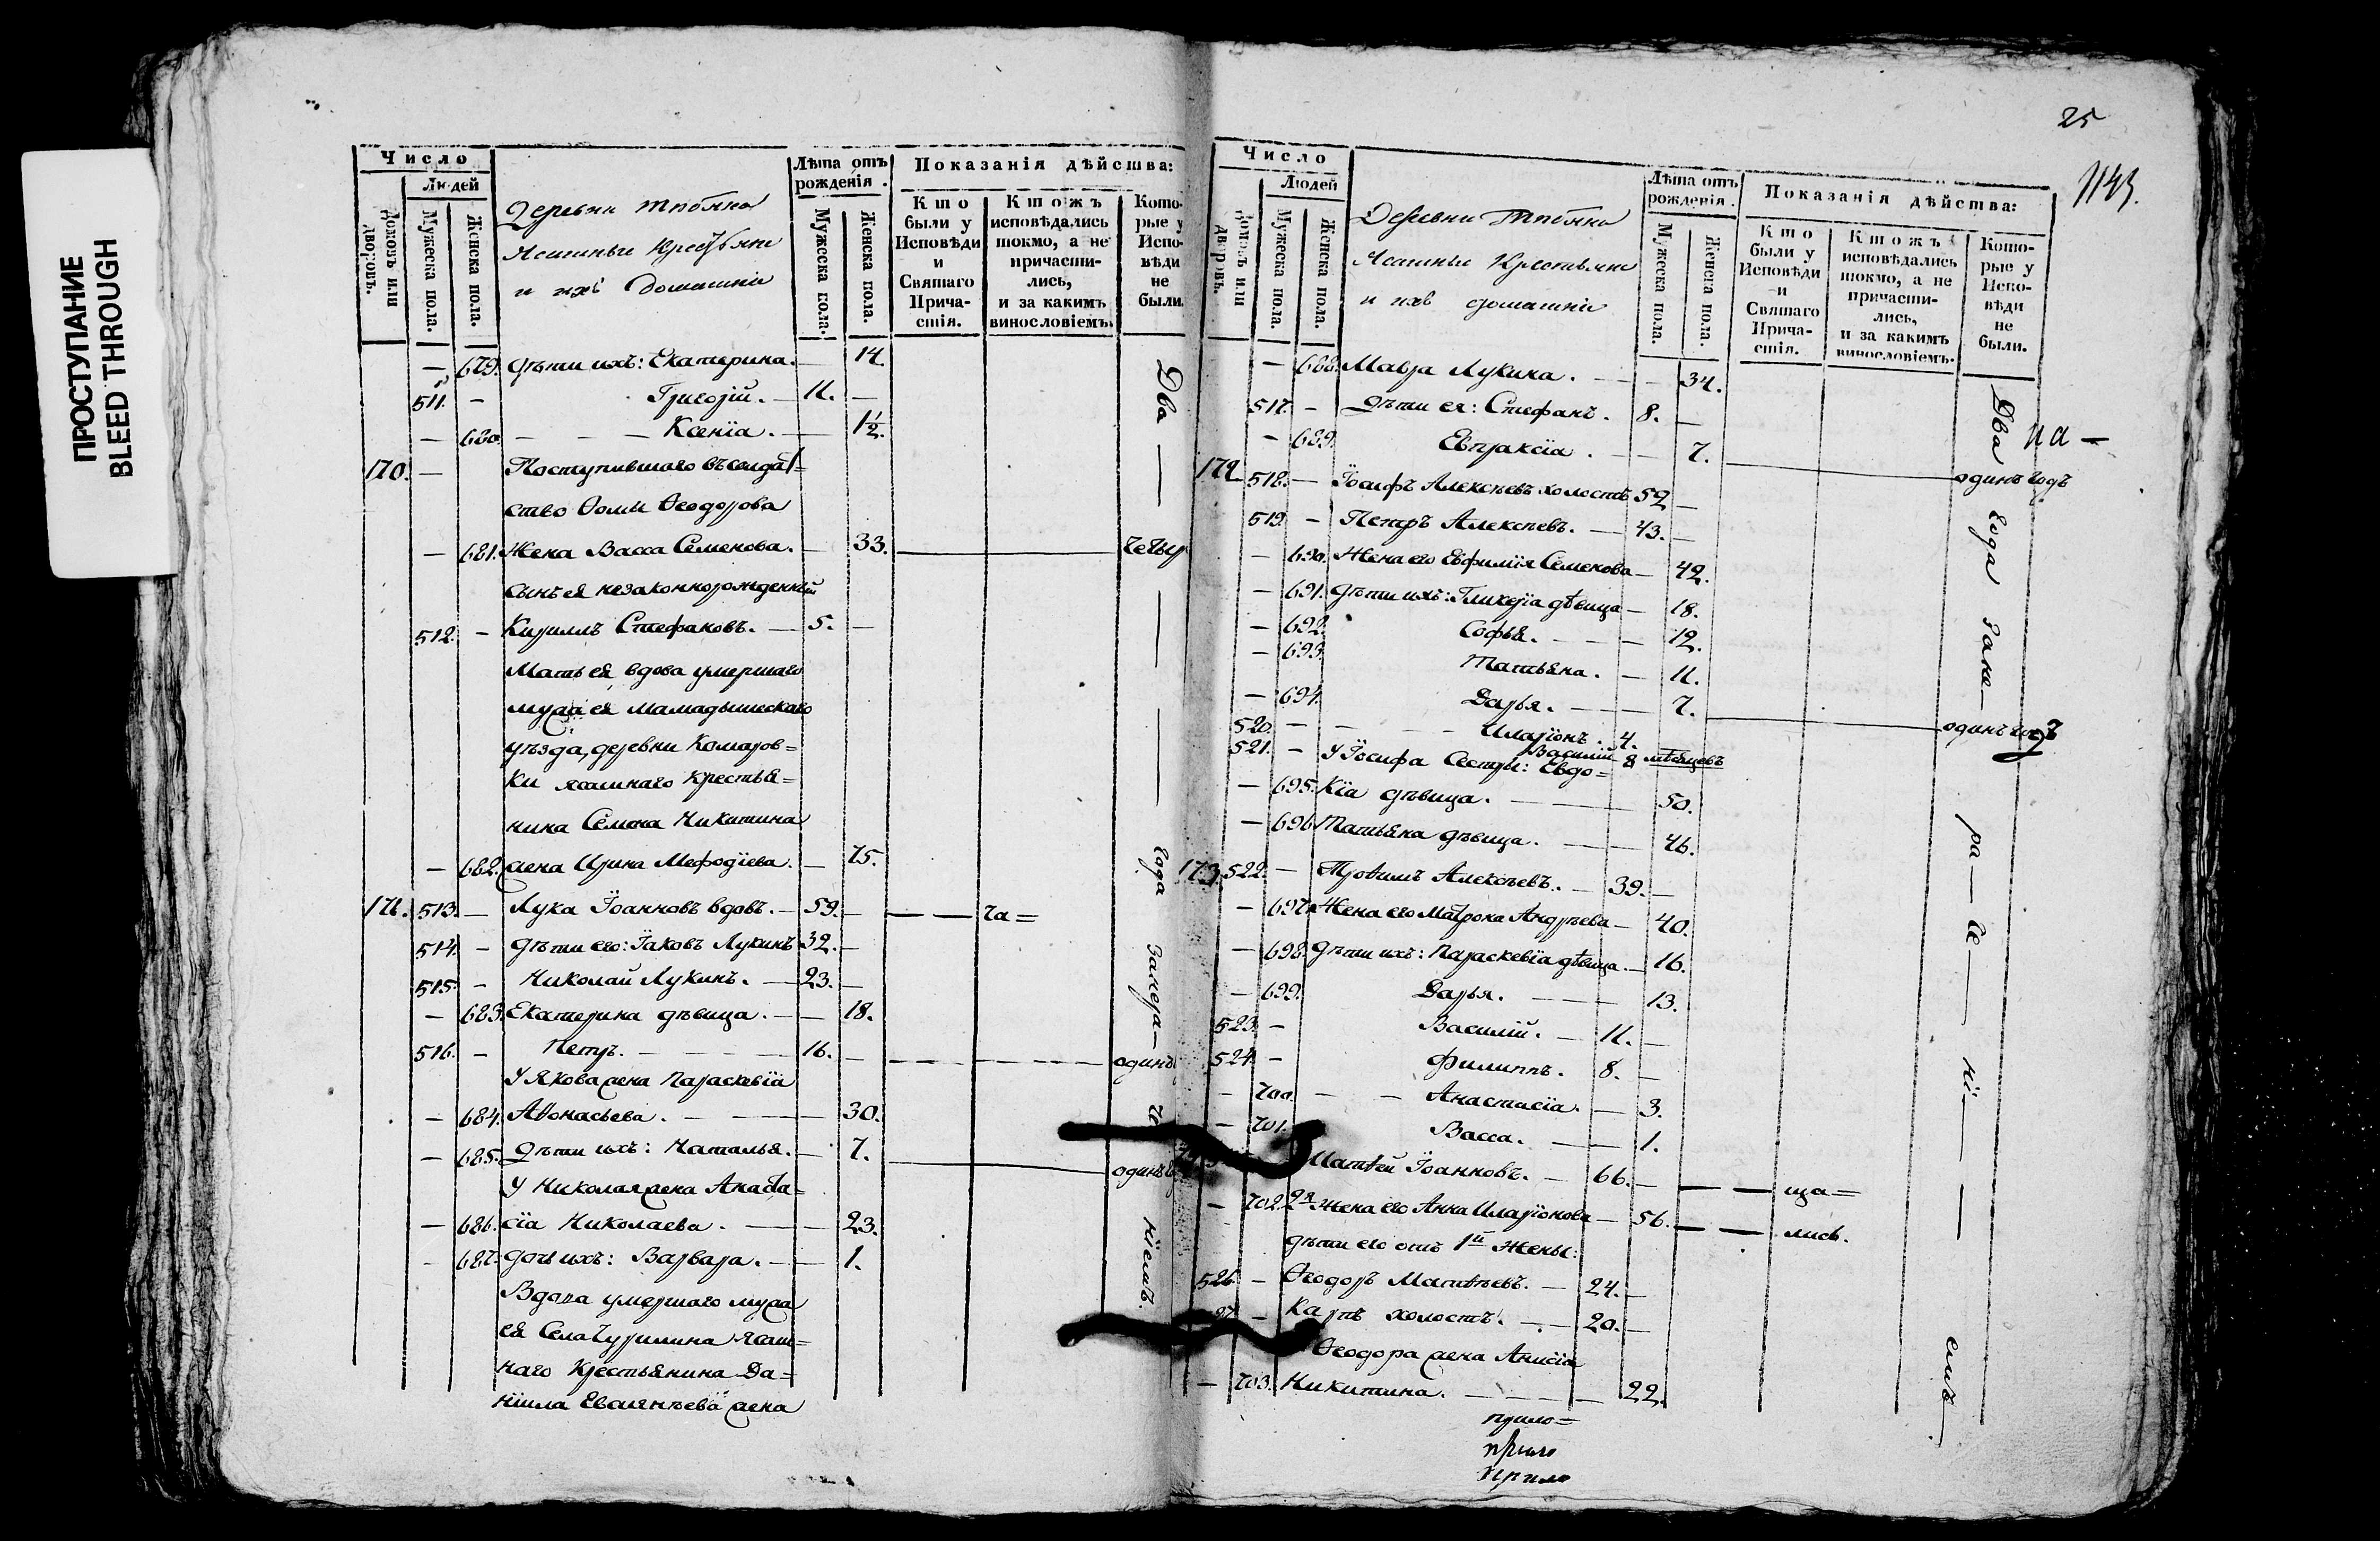 ПРОСТУПАНИЕ
BLEED THROUGH
Число
Людей
Домовъ или дворовъ.
Мужеска пола.
Женска пола.
Деревни
Ясашные Крестьяне
и ихъ Домашніи
Лѣта отъ рожденія.
Мужеска пола.
Женска пола.
Показанія дѣйства:
Кто были у Исповѣди и Святаго Причастія.
Ктожъ исповѣдались токмо, а не причастились, и за какимъ винословіемъ.
Которые у Исповѣди не были.
— 679. дѣти ихъ: Екатерина. — 14.
511. — Григорій. — 11. —
— 680. — — — Ксенія. — 1½.
170. — Поступившаго въ солдат=
ство Ѳомы Ѳеодорова
— 681. Жена Васса Семенова. — 33. четыр
сынъ ея незаконнорожденный
512. — Кириллъ Стефановъ. — 5. —
Мать ея вдова умершаго
мужа ея Мамадышскаго
уѣзда, деревни Комаров=
ки ясашнаго крестья=
нина Семена Никитина
— 682. жена Ирина Мефодіева. — 75.
171. 513. — Лука Іоанновъ вдовъ. — 59. — — — ча=
514. — дѣти его: Іаковъ Лукинъ 32. —
515. — Николай Лукинъ. — 23. —
— 683. Екатерина дѣвица. — — 18.
516. — Петръ. — — — 16. — одинъ
У Якова жена Параскевія
— 684. Аѳонасьева. — — — 30.
— 685. Дѣти ихъ: Наталья. — 7. одинъ
У Николая жена Анаста=
— 686. сія Николаева. — — 23.
— 687. дочь ихъ: Варвара. — — 1.
Вдова умершаго мужа
ея Села Чурилина ясаш=
наго Крестьянина Да=
ніила Евсигнѣева жена
Два
года
Занера—
че
ніемъ.
25
1143.
Число
Людей
Домовъ или дворовъ.
Мужеска пола.
Женска пола.
Деревни
Ясашные Крестьяне
и ихъ домашніи
Лѣта отъ рожденія.
Мужеска пола.
Женска пола.
Показанія дѣйства:
Кто были у Исповѣди и Святаго Причастія.
Ктожъ исповѣдались токмо, а не причастились, и за какимъ винословіемъ.
Которые у Исповѣди не были.
— 688. Мавра Лукина. — — 34.
517. — Дѣти ея: Стефанъ. 8. —
— 689. Евпраксіа. — — 7.
172. 518. — Іосифъ Алексѣевъ холостъ 52 — одинъ годъ
519. — Петръ Алексѣевъ. — 43. —
— 690. Жена его Евфимія Семенова — 42.
— 691. дѣти ихъ: Гликеріа дѣвица — 18.
— 692. Софья. — — 12.
— 693. Татьяна. — 11.
— 694. Дарья. — — 7. одинъ годъ
520. — — Иларіонъ. 4.
521. — Василій 8 мѣсяцевъ
У Іосифа Сестры: Евдо=
— 695. кіа дѣвица. — — 50.
— 696. Татьяна дѣвица. — — 46.
173. 522. — Трофимъ Алексѣевъ. — 39. —
— 697. Жена его Матрона Андрѣева — 40.
— 698. дѣти ихъ: Параскевіа дѣвица. — 16.
— 699. Дарья. — — 13.
523. — Василій. — 11. —
524. — Филиппъ. 8. —
— 700. — — Анастасіа. — 3.
— 701. Васса. — — 1.
Матвей Іоанновъ. — 66. — — — ща=
— 702. 2я Жена его Анна Иларіонова — 56. — — лись.
дѣти его отъ 1й Жены:
526. — Ѳеодоръ Матвѣевъ. — 24. —
— Карпъ холостъ. — 20. —
Ѳеодора жена Анисіа
— 703. Никитина. — — — 22.
Два
года
Зане—
ра—че—
ні—
емъ.
на —
прило=
прило
прило